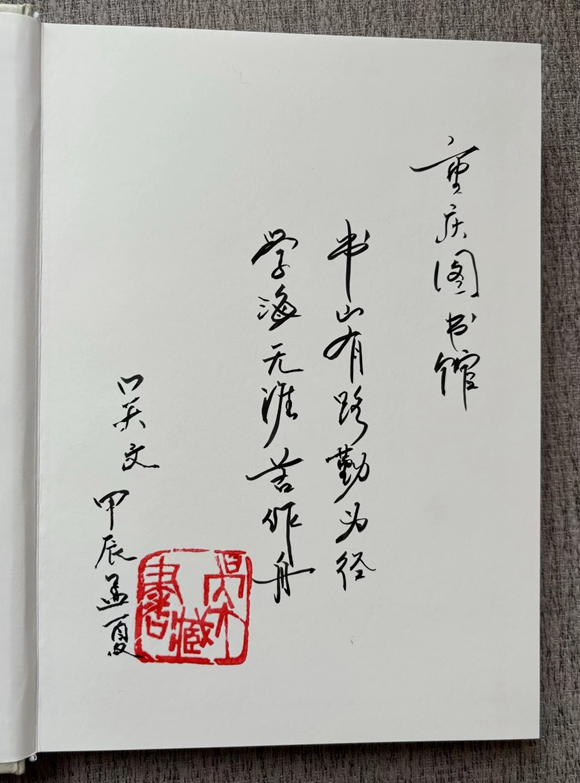 重庆图书馆
书山有路勤为径
学海无涯苦作舟
吴文
甲辰孟夏